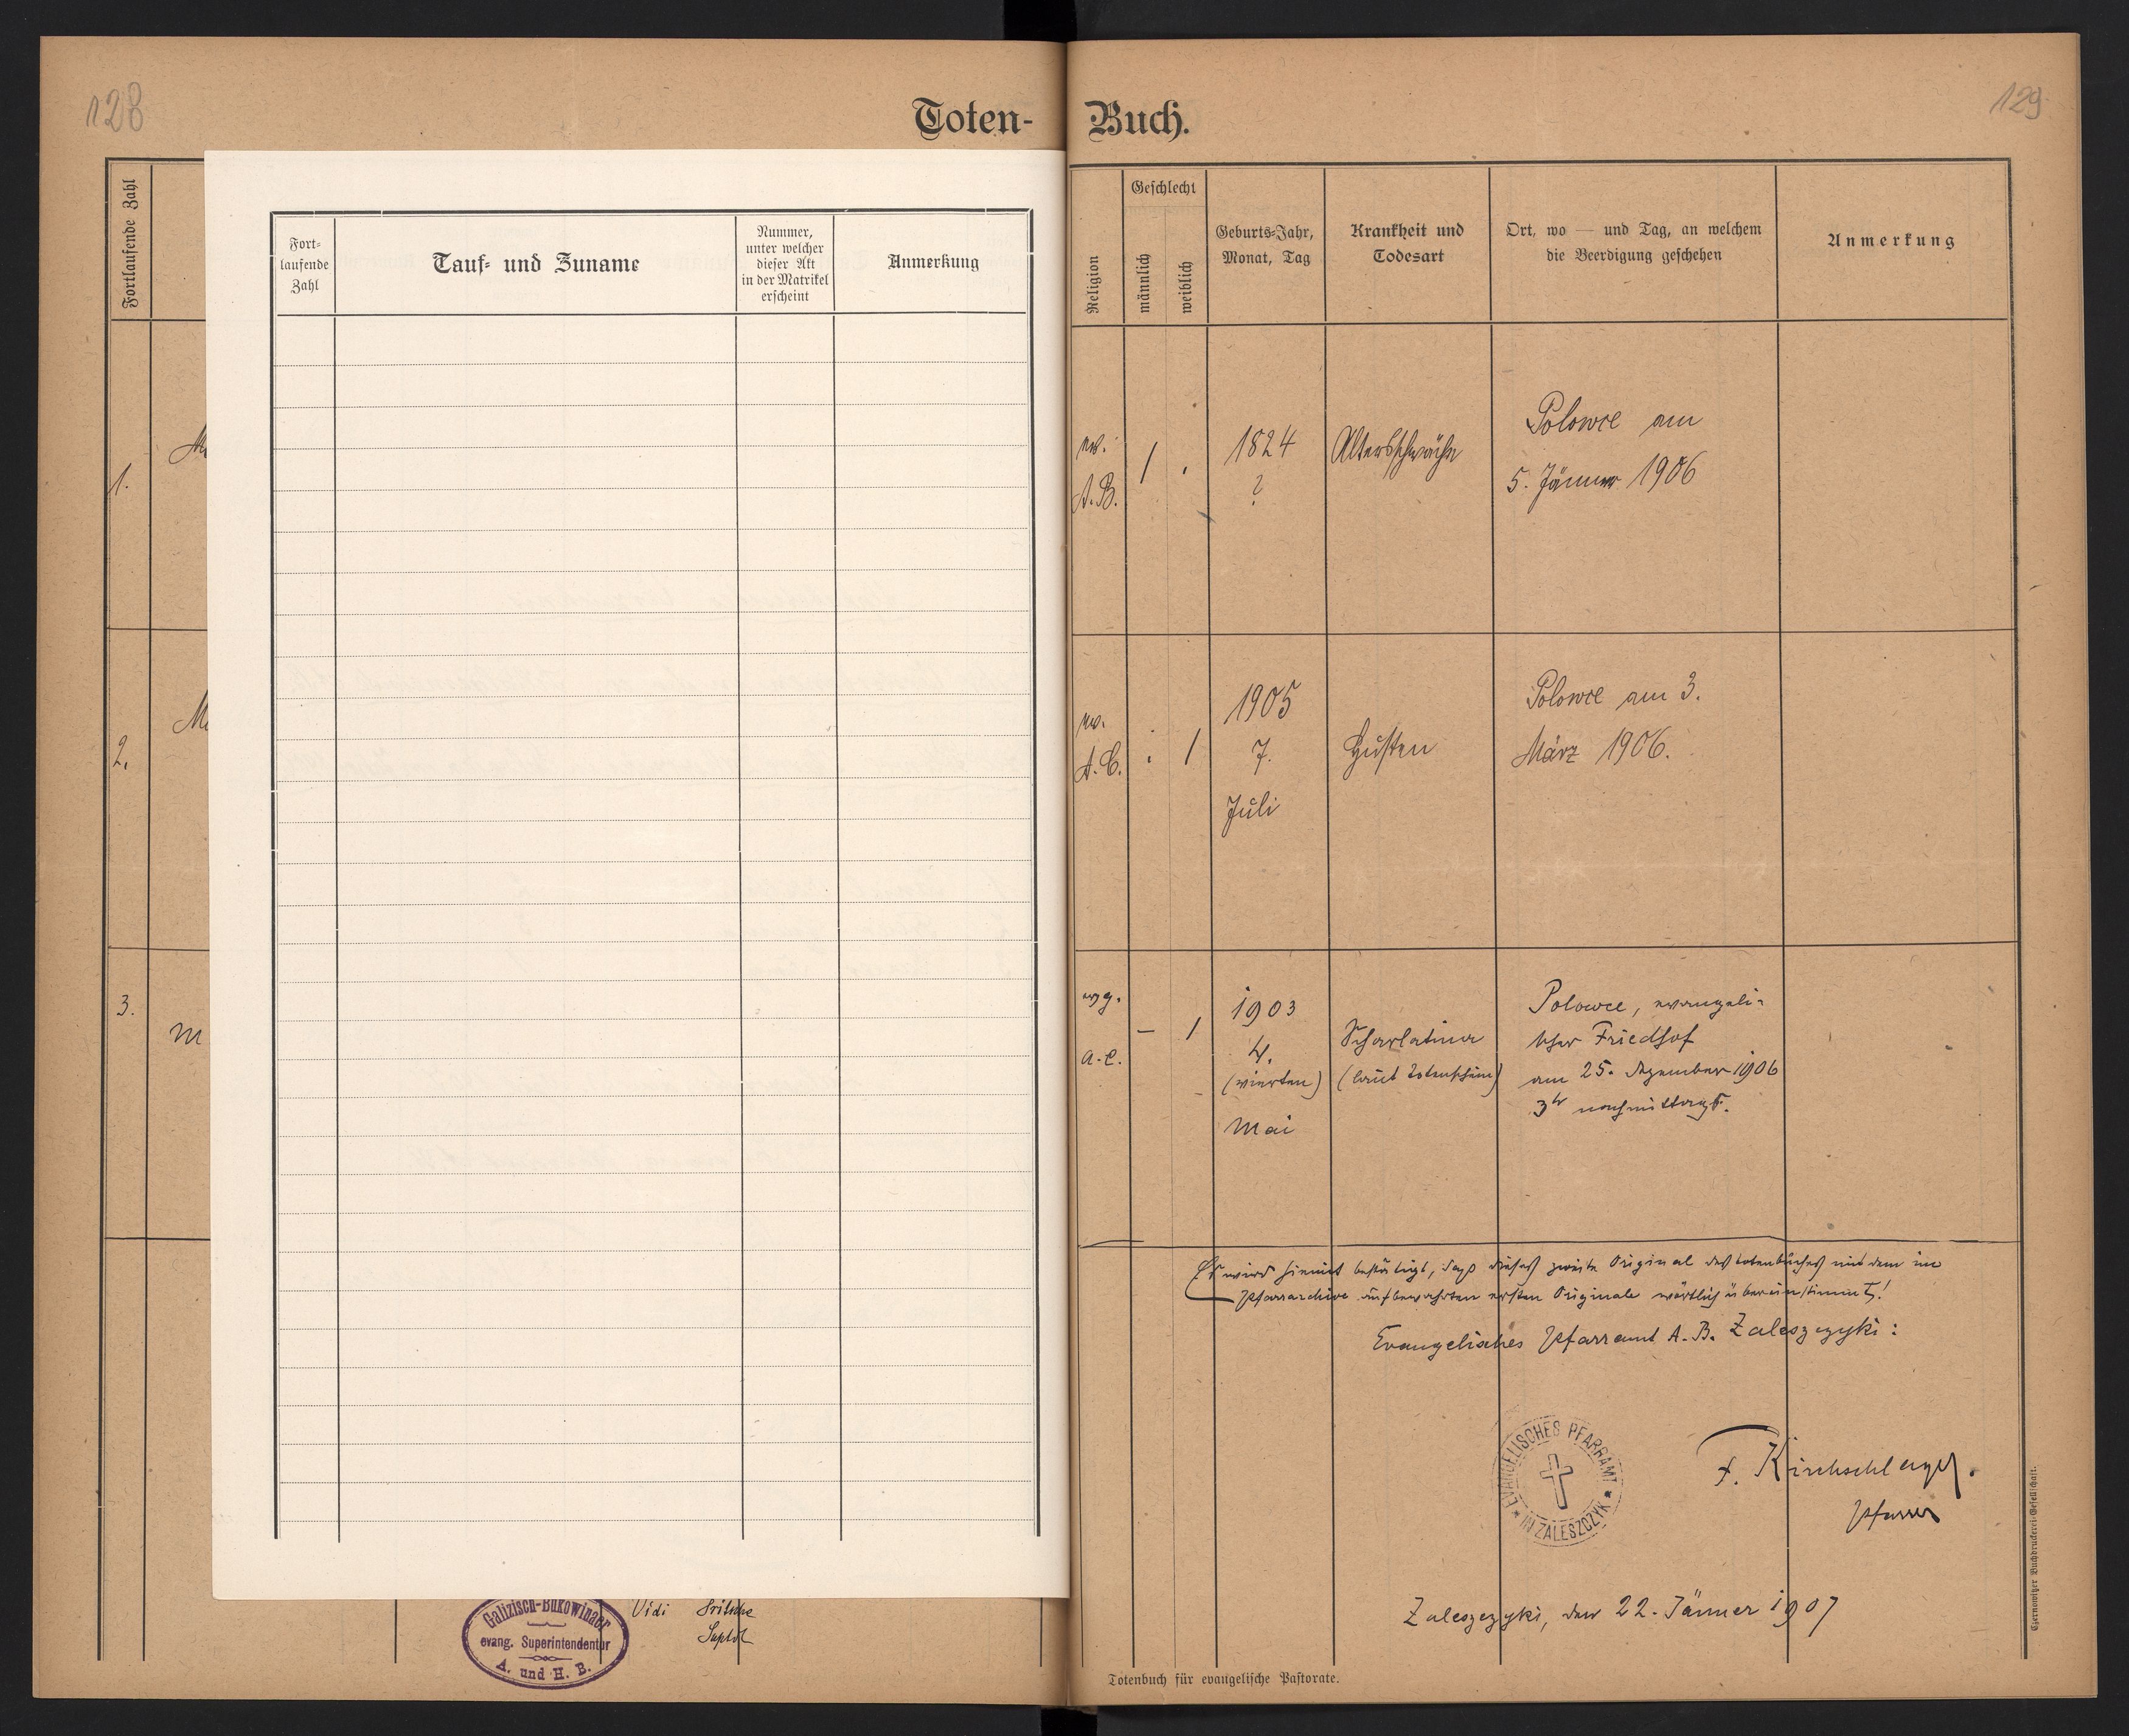 128
129
Toten-
Buch.
Fortlaufende Zahl
1.
2.
3.
M
Fort-
laufende
Zahl
Tauf- und Zuname
Nummer,
unter welcher
dieser Akt
in der Matrikel
erscheint
Anmerkung
Religion
Geschlecht
männlich
weiblich
Geburts-Jahr,
Monat, Tag
Krankheit und
Todesart
Ort, wo — und Tag, an welchem
die Beerdigung geschehen
Anmerkung
ev.
A.B.
/
1824
?
Altersschwäche
Polowce am
5. Jänner 1906
ev.
A.C.
/
1905
7.
Juli
Husten
Polowce am 3.
März 1906.
evg.
a.C.
–
/
1903
4.
(vierten)
Mai
Scharlatina
(laut Totenschein)
Polowce, evangeli-
scher Friedhof
am 25. Dezember 1906
3h nachmittags.
Es wird hiemit bestätigt, daß dieses zweite Original des Totenbuches mit dem im
Pfarrarchive aufbewahrten ersten Originale wörtlich übereinstimmt!
Evangelisches Pfarramt A.B. Zaleszczyki:
EVANGELISCHES PFARRAMT
IN ZALESZCZYK
F. Kirchschlager.
Pfarrer
Zaleszczyki, den 22. Jänner 1907
Galizisch-Bukowinaer
evang. Superintendentur
A. und H. B.
Vidi Fritsche
Suptdt
Totenbuch für evangelische Pastorate.
Czernowitzer Buchdruckerei-Gesellschaft.